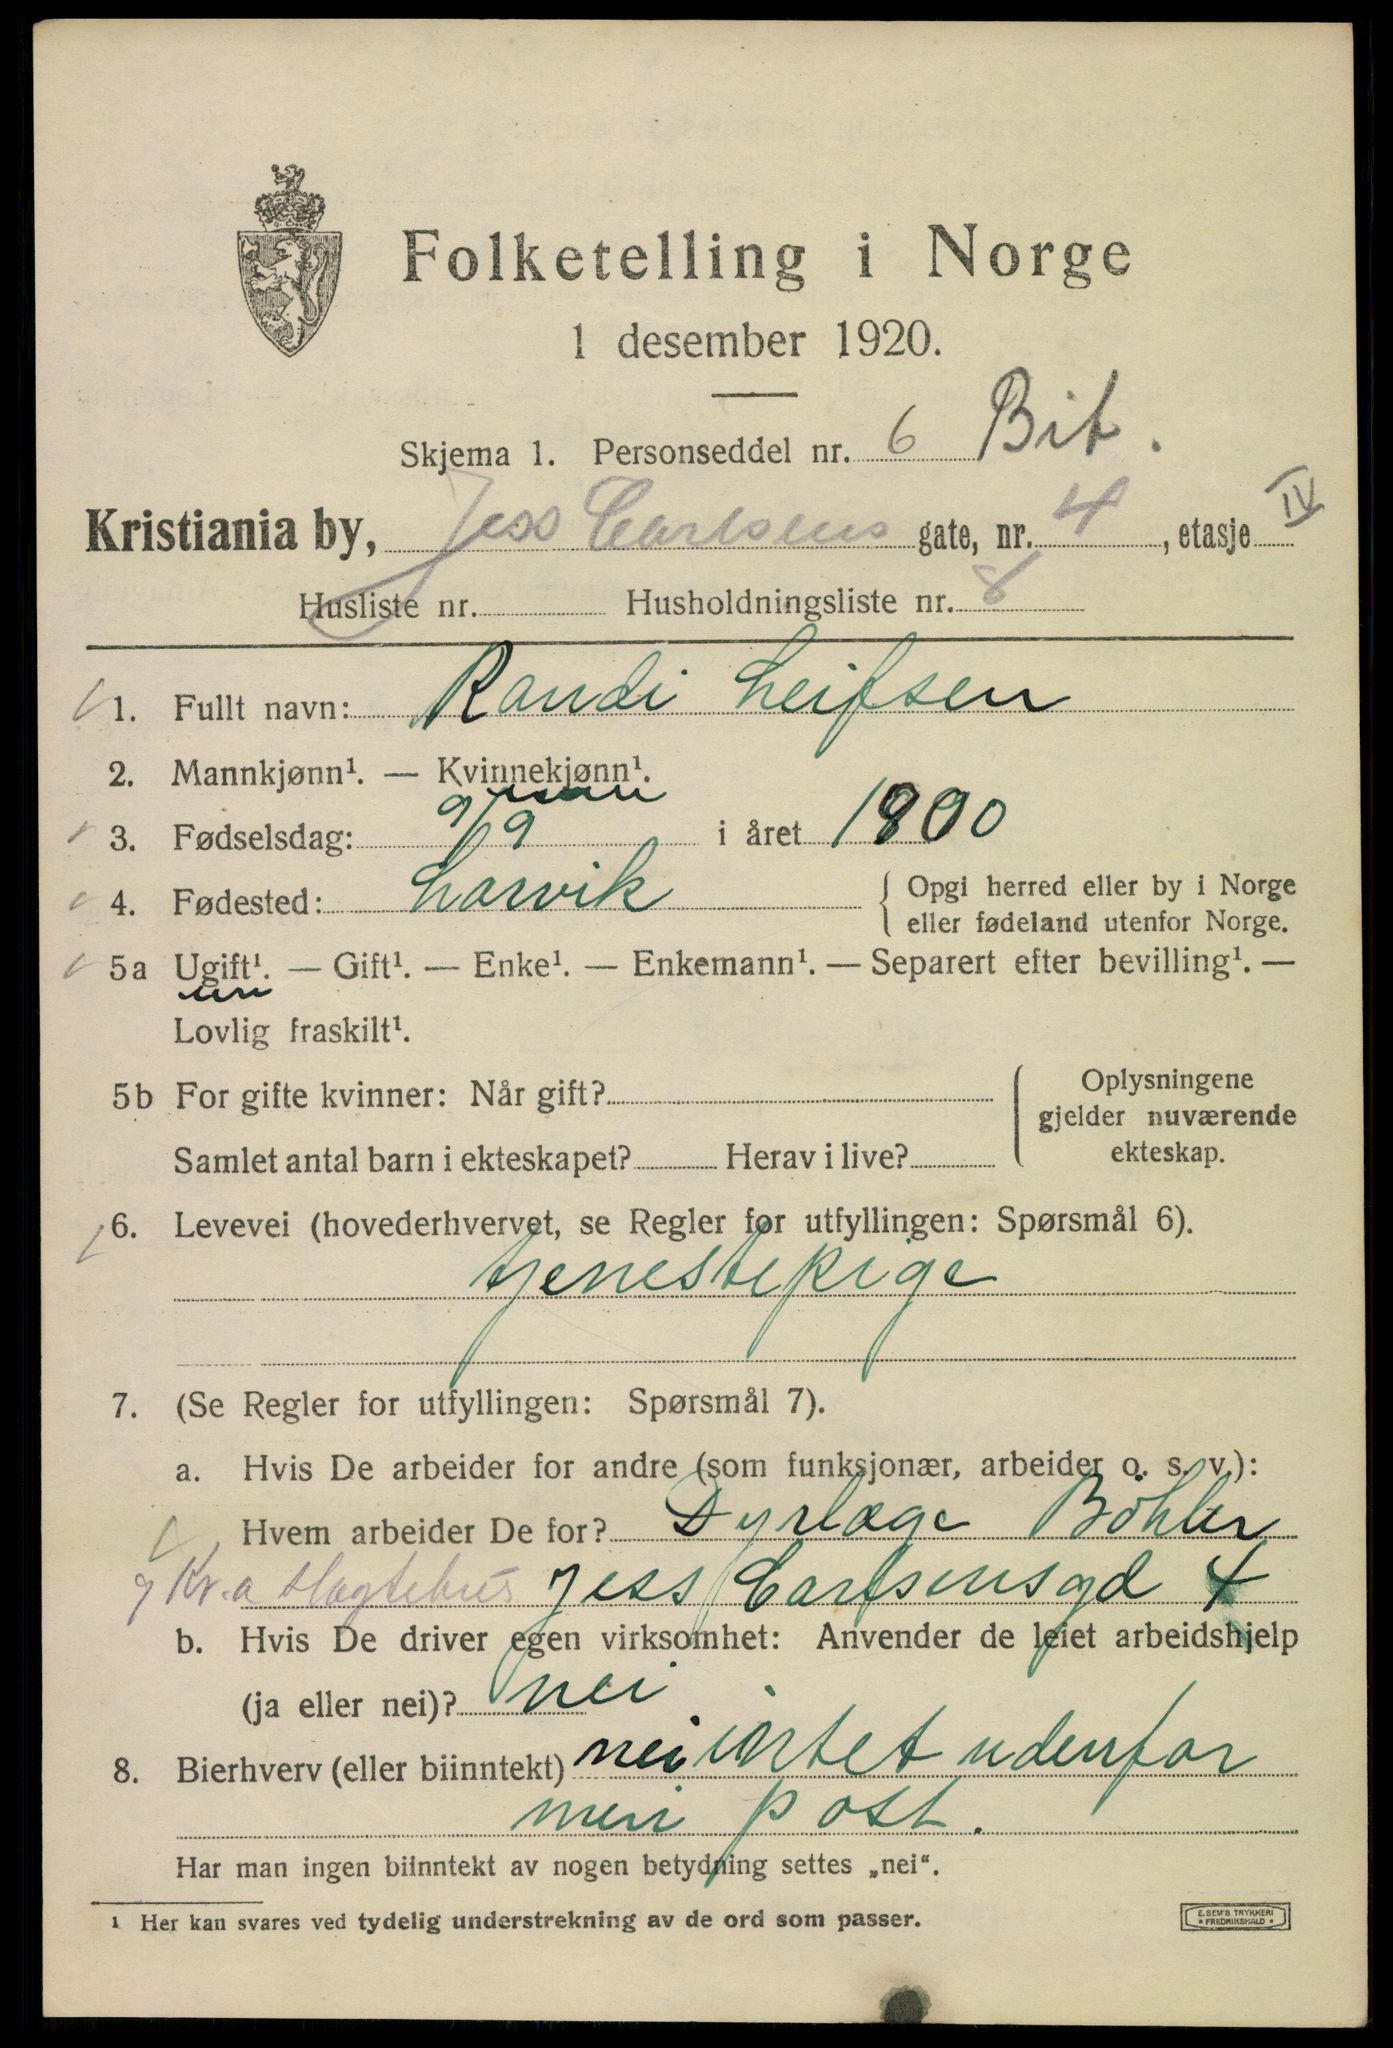 Folketelling i Norge
1 desember 1920.
Skjema 1. Personseddel nr. 6 Bit.
Kristiania by, Jess Carlsens gate, nr. 4, etasje IV
Husliste nr. Husholdningsliste nr. 8
1. Fullt navn: Randi Leifsen
2. Mannkjønn¹. — Kvinnekjønn¹.
3. Fødselsdag: 9/9 i året 1900
4. Fødested: Larvik { Opgi herred eller by i Norge
eller fødeland utenfor Norge.
5a Ugift¹. — Gift¹. — Enke¹. — Enkemann¹. — Separert efter bevilling¹. —
Lovlig fraskilt¹.
5b For gifte kvinner: Når gift? { Oplysningene
gjelder nuværende
Samlet antal barn i ekteskapet? Herav i live? ekteskap.
6. Levevei (hovederhvervet, se Regler for utfyllingen: Spørsmål 6).
tjenestepige
7. (Se Regler for utfyllingen: Spørsmål 7).
a. Hvis De arbeider for andre (som funksjonær, arbeider o. s. v.):
Hvem arbeider De for? Dyrlæge Böhler
Kr.a Slagtehus Jess Carlsensgd 4
b. Hvis De driver egen virksomhet: Anvender de leiet arbeidshjelp
(ja eller nei)? nei
8. Bierhverv (eller biinntekt) nei intet udenfor
min post.
Har man ingen biinntekt av nogen betydning settes „nei“.
¹ Her kan svares ved tydelig understrekning av de ord som passer.
E. SEM'S TRYKKERI
FREDRIKSHALD